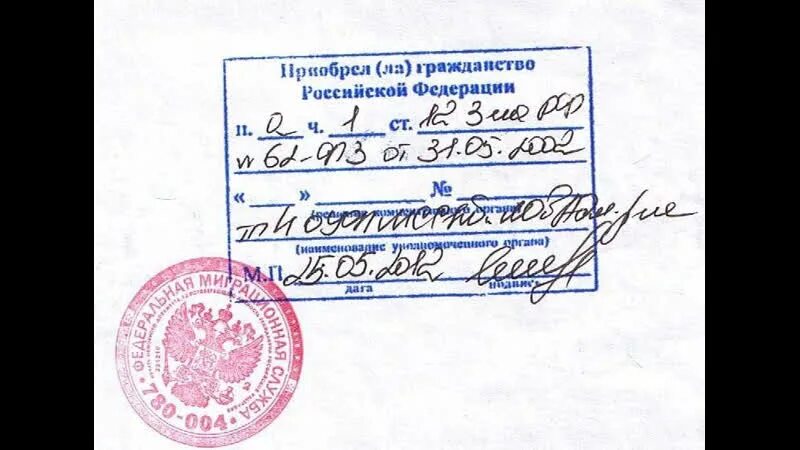 Приобрел (ла) гражданство
Российской Федерации
п. а ч. 1 ст. 12 З-на РФ
N 62-ФЗ от 31.05.2002
« » №
(решение компетентного органа)
(наименование уполномоченного органа)
М.П. 25.05.2012
дата подпись
ФЕДЕРАЛЬНАЯ МИГРАЦИОННАЯ СЛУЖБА
780-004